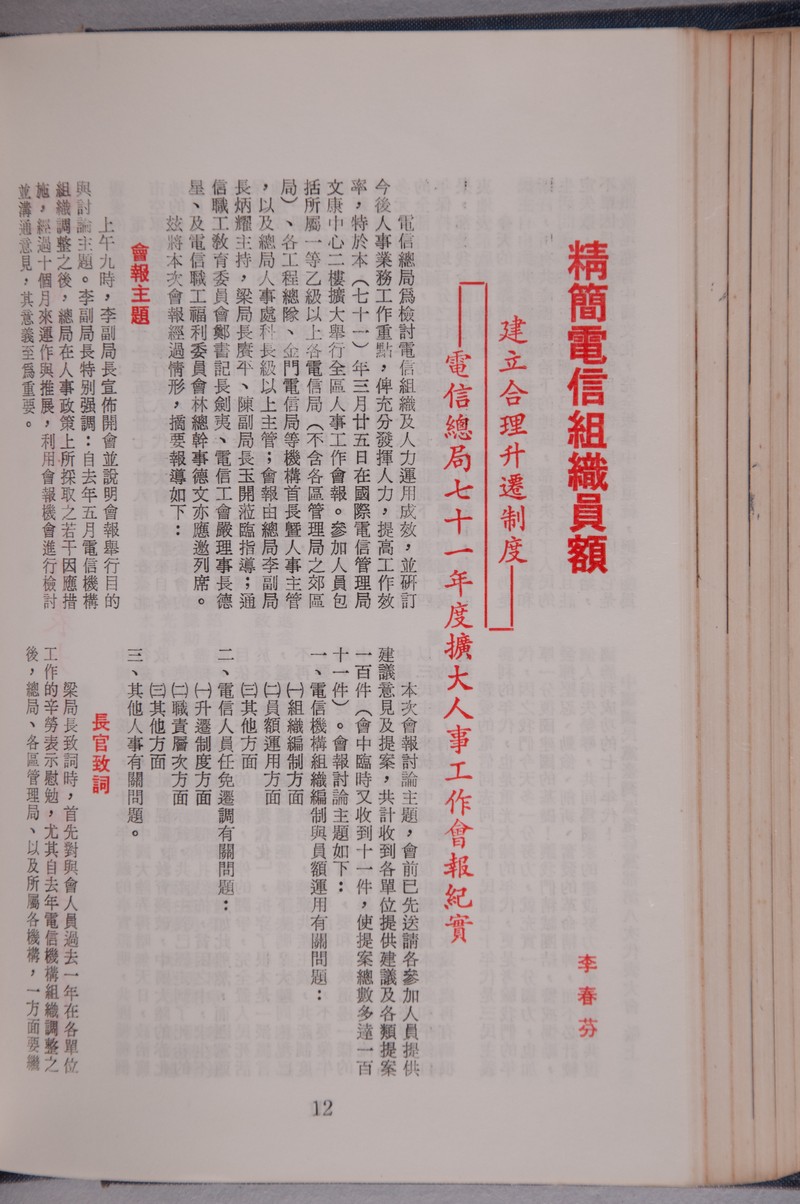 精簡電信組織員額
建立合理升遷制度——
——電信總局七十一年度擴大人事工作會報紀實
李春芬
電信總局爲檢討電信組織及人力運用成效，並硏訂
今後人事業務工作重點，俾充分發揮人力，提高工作效
率，特於本（七十一）年三月廿五日在國際電信管理局
文康中心二樓擴大舉行全區人事工作會報。參加人員包
括所屬一等乙級以上各電信局（不含各區管理局之郊區
局）、各工程總隊、金門電信局等機構首長暨人事主管
，以及總局人事處科長級以上主管；會報由總局李副局
長炳耀主持，梁局長賡平、陳副局長玉開蒞臨指導；通
信職工敎育委員會鄭書記長劍夷、電信工會嚴理事長德
星、及電信職工福利委員會林總幹事德文亦應邀列席。
玆將本次會報經過情形，摘要報導如下：
會報主題
上午九時，李副局長宣佈開會並說明會報舉行目的
與討論主題。李副局長特別强調：自去年五月電信機構
組織調整之後，總局在人事政策上所採取之若干因應措
施，經過十個月來運作與推展，利用會報機會進行檢討
並溝通意見，其意義至爲重要。
本次會報討論主題，會前已先送請各參加人員提供
建議意見及提案，共計收到各單位提供建議及各類提案
一百件（會中臨時又收到十一件，使提案總數多達一百
十一件）。會報討論主題如下：
一、電信機構組織編制與員額運用有關問題：
㈠組織編制方面
㈡員額運用方面
㈢其他方面
二、電信人員任免遷調有關問題：
㈠升遷制度方面
㈡職責層次方面
㈢其他方面
三、其他人事有關問題。
長官致詞
梁局長致詞時，首先對與會人員過去一年在各單位
工作的辛勞表示慰勉，尤其自去年電信機構組織調整之
後，總局、各區管理局、以及所屬各機構，一方面要繼
12